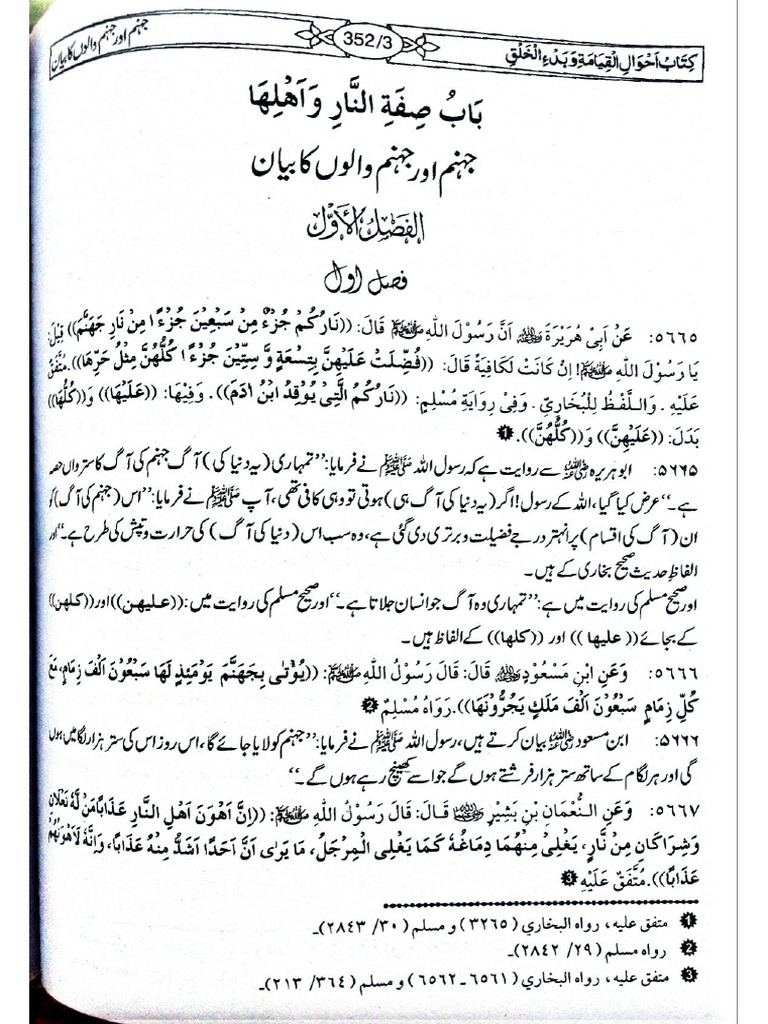 كِتَابُ اَحْوَالِ الْقِيَامَةِ وَبَدْءِ الْخَلْقِ
352/3
جہنم اور جہنم والوں کا بیان
بَابُ صِفَةِ النَّارِ وَاَهْلِهَا
جہنم اور جہنم والوں کا بیان
الْفَصْلُ الْأَوَّلُ
فصل اول
٥٦٦٥: عَنْ اَبِیْ هُرَيْرَةَ ؓ اَنَّ رَسُوْلَ اللهِ ﷺ قَالَ: ((نَارُكُمْ جُزْءٌ مِنْ سَبْعِيْنَ جُزْءًا مِنْ نَارِ جَهَنَّمَ)) قِيْلَ:
يَا رَسُوْلَ اللهِ ﷺ! اِنْ كَانَتْ لَكَافِيَةً قَالَ: ((فُضِّلَتْ عَلَيْهِنَّ بِتِسْعَةٍ وَّ سِتِّيْنَ جُزْءًا كُلُّهُنَّ مِثْلُ حَرِّهَا)). مُتَّفَقٌ
عَلَيْهِ. وَاللَّفْظُ لِلْبُخَارِيِّ. وَفِیْ رِوَايَةِ مُسْلِمٍ: ((نَارُكُمُ الَّتِیْ يُوْقِدُ ابْنُ اٰدَمَ)). وَفِيْهَا: ((عَلَيْهَا)) وَ((كُلُّهَا))
بَدَلَ: ((عَلَيْهِنَّ)) وَ((كُلُّهُنَّ)). ❶
٥٦٦٥: ابو ہریرہ ؓ سے روایت ہے کہ رسول اللہ ﷺ نے فرمایا: ’’تمہاری (یہ دنیا کی) آگ جہنم کی آگ کا سترواں حصہ
ہے۔‘‘ عرض کیا گیا، اللہ کے رسول! اگر (یہ دنیا کی آگ ہی) ہوتی تو وہی کافی تھی، آپ ﷺ نے فرمایا: ’’اس (جہنم کی آگ) کو
ان (آگ کی اقسام) پر انہتر درجے فضیلت و برتری دی گئی ہے، وہ سب اس (دنیا کی آگ) کی حرارت و تپش کی طرح ہے۔‘‘ اور
الفاظِ حدیث صحیح بخاری کے ہیں۔
اور صحیح مسلم کی روایت میں ہے: ’’تمہاری وہ آگ جو انسان جلاتا ہے۔‘‘ اور صحیح مسلم کی روایت میں: ((علیهن)) اور ((کلهن))
کے بجائے ((علیها)) اور ((کلها)) کے الفاظ ہیں۔
٥٦٦٦: وَعَنِ ابْنِ مَسْعُوْدٍ ؓ قَالَ: قَالَ رَسُوْلُ اللهِ ﷺ: ((يُؤْتٰى بِجَهَنَّمَ يَوْمَئِذٍ لَهَا سَبْعُوْنَ اَلْفَ زِمَامٍ، مَعَ
كُلِّ زِمَامٍ سَبْعُوْنَ اَلْفَ مَلَكٍ يَجُرُّوْنَهَا)). رَوَاهُ مُسْلِمٌ ❷
٥٦٦٦: ابن مسعود ؓ بیان کرتے ہیں، رسول اللہ ﷺ نے فرمایا: ’’جہنم کو لایا جائے گا، اس روز اس کی ستر ہزار لگامیں ہوں
گی اور ہر لگام کے ساتھ ستر ہزار فرشتے ہوں گے جو اسے کھینچ رہے ہوں گے۔‘‘
٥٦٦٧: وَعَنِ النُّعْمَانِ بْنِ بَشِيْرٍ ؓ قَالَ: قَالَ رَسُوْلُ اللهِ ﷺ: ((اِنَّ اَهْوَنَ اَهْلِ النَّارِ عَذَابًا مَنْ لَهُ نَعْلَانِ
وَشِرَاكَانِ مِنْ نَّارٍ، يَغْلِیْ مِنْهُمَا دِمَاغُهُ كَمَا يَغْلِی الْمِرْجَلُ، مَا يَرٰى اَنَّ اَحَدًا اَشَدُّ مِنْهُ عَذَابًا، وَاِنَّهُ لَاَهْوَنُهُمْ
عَذَابًا)). مُتَّفَقٌ عَلَيْهِ ❸
❶ متفق عليه، رواه البخاري (٣٢٦٥) و مسلم (٣٠/ ٢٨٤٣)۔
❷ رواه مسلم (٢٩/ ٢٨٤٢)۔
❸ متفق عليه، رواه البخاري (٦٥٦١ ـ ٦٥٦٢) و مسلم (٣٦٤/ ٢١٣)۔